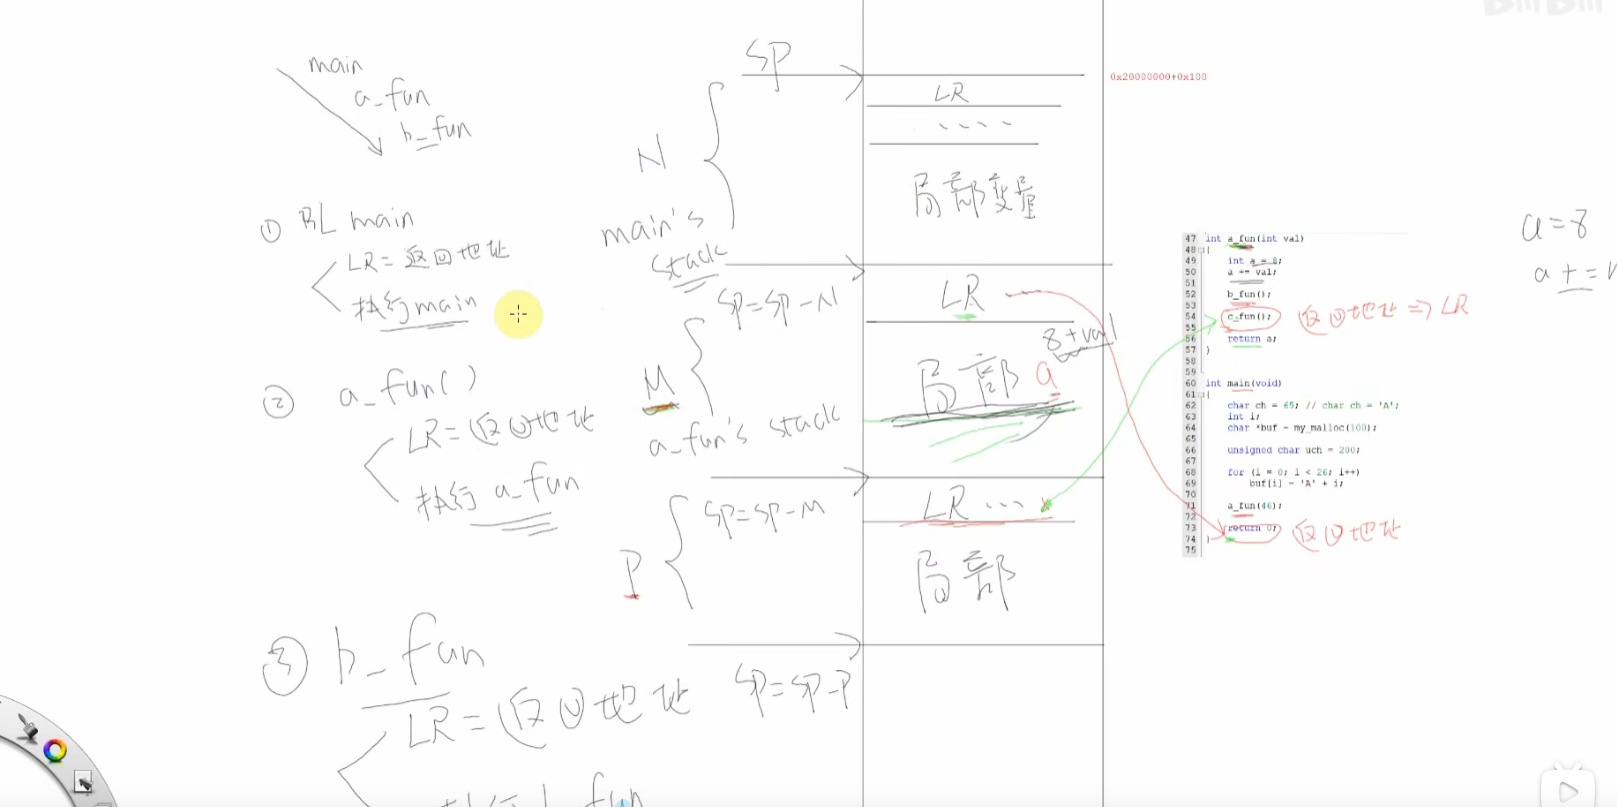 BiliBili
main
a_fun
b_fun
① BL main
LR=返回地址
执行main
② a_fun()
LR=返回地址
执行 a_fun
③ b_fun
LR=返回地址
SP
N
main's
stack
SP=SP-N
M
a_fun's stack
SP=SP-M
P
SP=SP-P
0x20000000+0x100
LR
....
局部变量
LR
8+val
局部 a
LR ...
局部
47 int a_fun(int val)
48 {
49 int a = 8;
50 a += val;
51
52 b_fun();
53
54 c_fun();
55
56 return a;
57 }
58
59
60 int main(void)
61 {
62 char ch = 65; // char ch = 'A';
63 int i;
64 char *buf = my_malloc(100);
65
66 unsigned char uch = 200;
67
68 for (i = 0; i < 26; i++)
69 buf[i] = 'A' + i;
70
71 a_fun(46);
72
73 return 0;
74 }
75
返回地址 => LR
返回地址
a=8
a+=